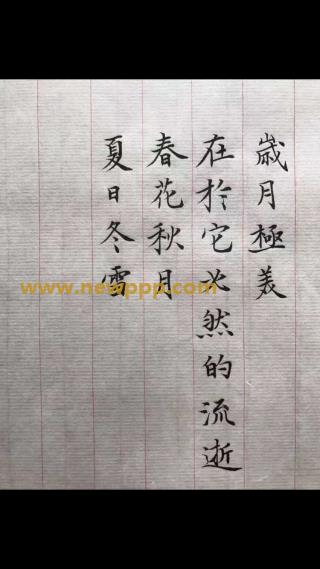 歳月極美
在於它必然的流逝
春花秋月
夏日冬雪
www.newppp.com